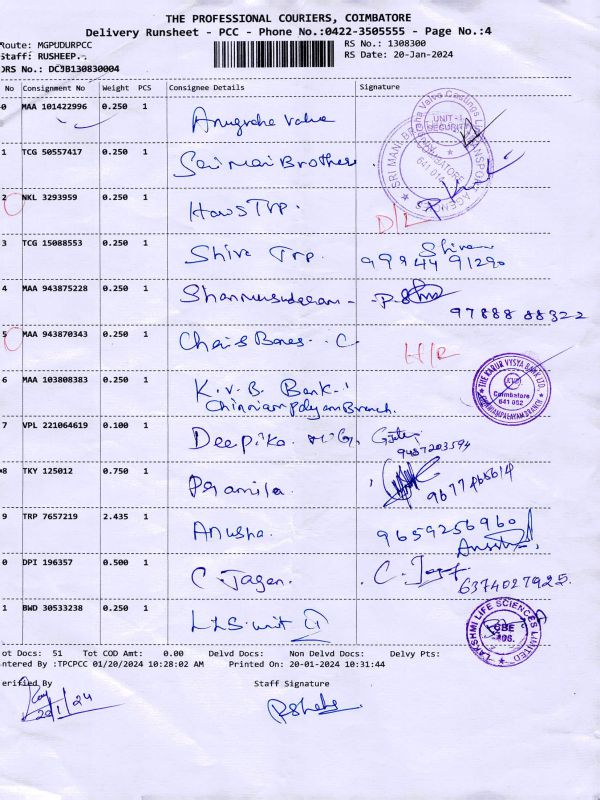 THE PROFESSIONAL COURIERS, COIMBATORE
Delivery Runsheet - PCC - Phone No.:0422-3505555 - Page No.:4
Route: MGPUDURPCC RS No.: 1308300
Staff: RUSHEEP.. RS Date: 20-Jan-2024
DRS No.: DCJB130830004
No Consignment No Weight PCS Consignee Details Signature
0 MAA 101422996 0.250 1 Anugraha Valve
1 TCG 50557417 0.250 1 Sai Mai Brothers.
2 NKL 3293959 0.250 1 Haws Trp. D/L
3 TCG 15088553 0.250 1 Shiva Trp. Shivan
99944 91290
4 MAA 943875228 0.250 1 97888 88322
5 MAA 943870343 0.250 1 Chais Bones. C
6 MAA 103808383 0.250 1 K.V.B. Bank.
Chinniampalyam Branch.
THE KARUR VYSYA BANK LTD.
KVB
Coimbatore
641 062
CHINNIAMPALAYAM BRANCH
7 VPL 221064619 0.100 1 Deepika.
9487203594
*8 TKY 125012 0.750 1 Pramila. 9677465614
9 TRP 7657219 2.435 1 Anusha. 9659256960
0 DPI 196357 0.500 1 C. Jagan. C. Jagan
6374027925.
1 BWD 30533238 0.250 1 LLS. unit
LAKSHMI LIFE SCIENCES LIMITED
CBE
ot Docs: 51 Tot COD Amt: 0.00 Delvd Docs: Non Delvd Docs: Delvy Pts:
ntered By :TPCPCC 01/20/2024 10:28:02 AM Printed On: 20-01-2024 10:31:44
erified By Staff Signature
20/1/24